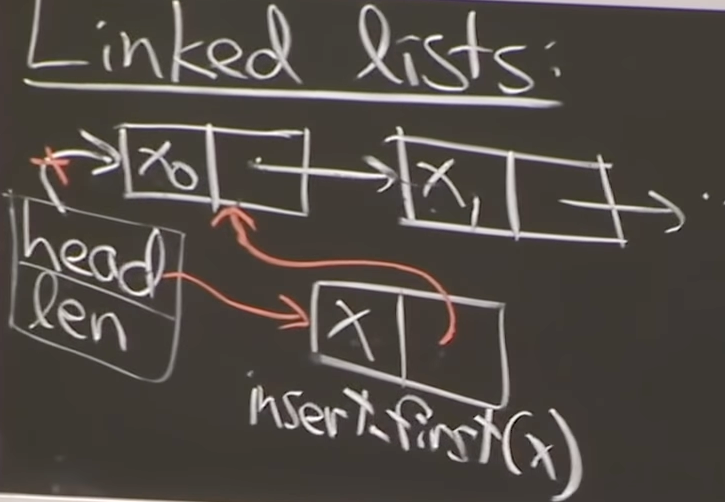 Linked lists:
x₀
x₁
head
len
x
insert_first(x)